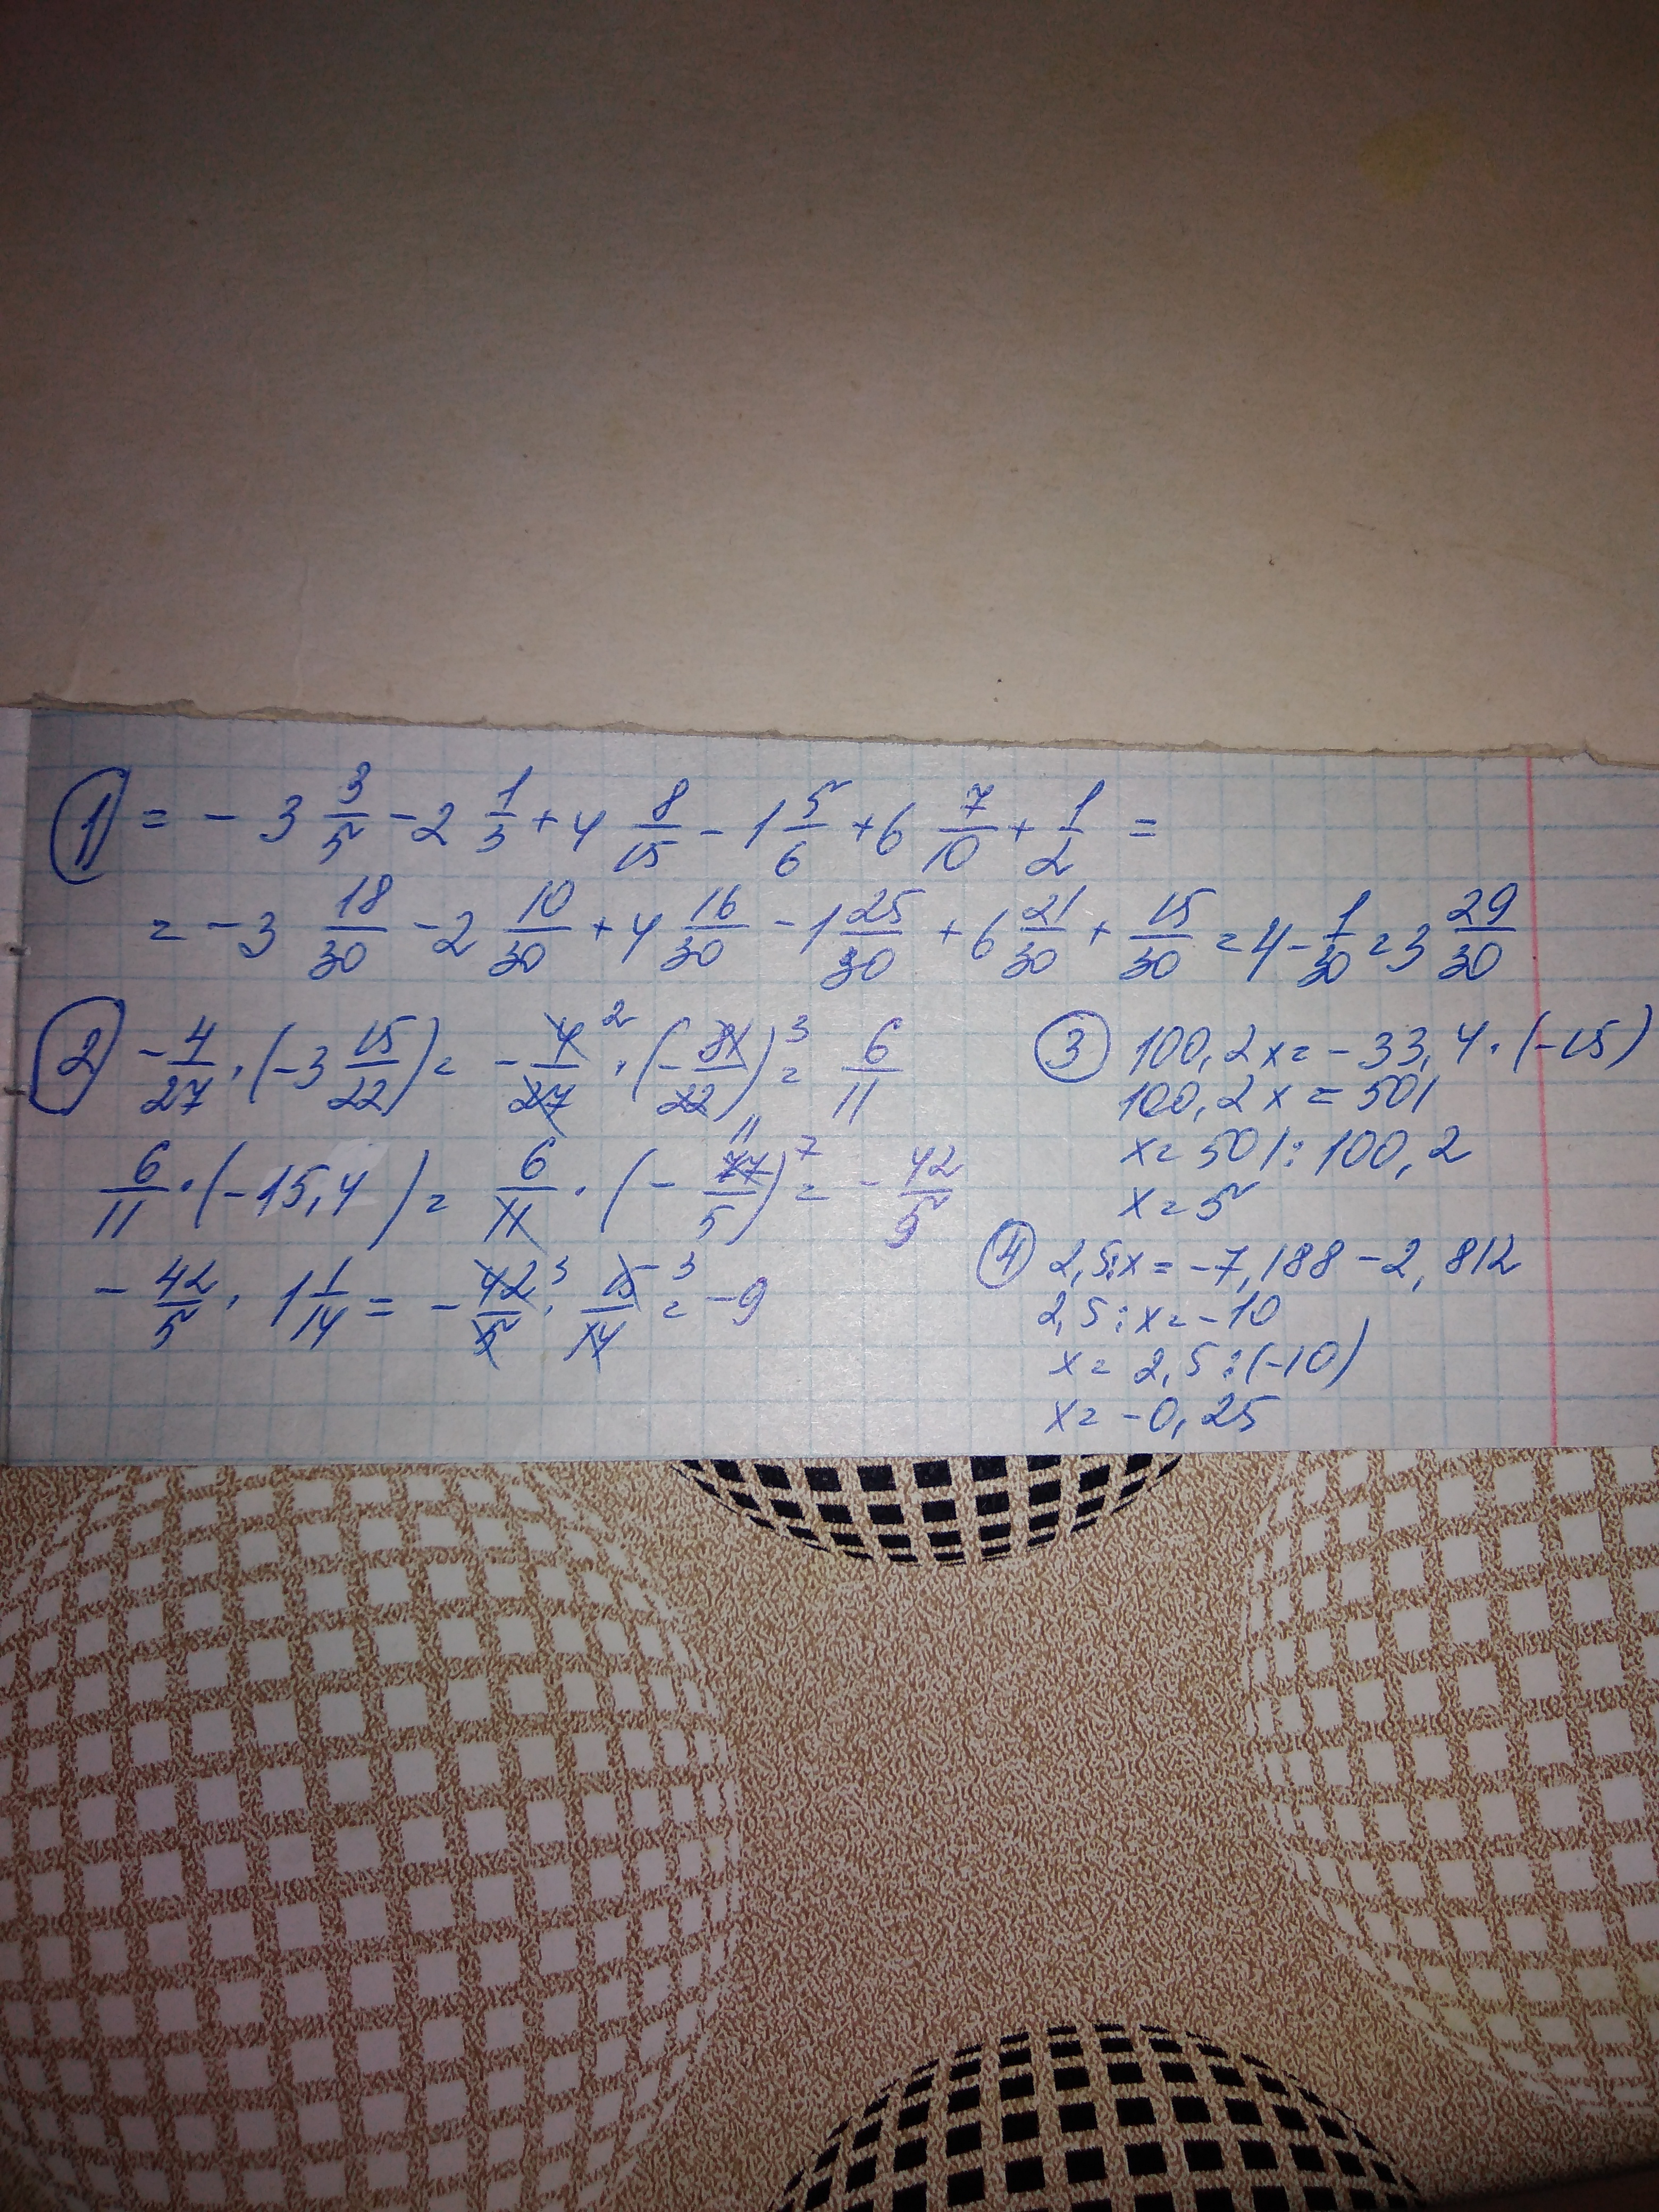 1) = - 3 3/5 - 2 1/3 + 4 8/15 - 1 5/6 + 6 7/10 + 1/2 =
= - 3 18/30 - 2 10/30 + 4 16/30 - 1 25/30 + 6 21/30 + 15/30 = 4 - 1/30 = 3 29/30
2) - 4/27 · (-3 15/22) = - 4/27 2 · (- 81/22)3 = 6/11
11
6/11 · (-15,4) = 6/11 · (- 77/5)7 = - 42/5
- 42/5 · 1 1/14 = - 42/5 3 · 15/14 3 = -9
3) 100,2x = -33,4 · (-15)
100,2x = 501
x = 501 : 100,2
x = 5
4) 2,5:x = -7,188 - 2,812
2,5 : x = -10
x = 2,5 : (-10)
x = -0,25